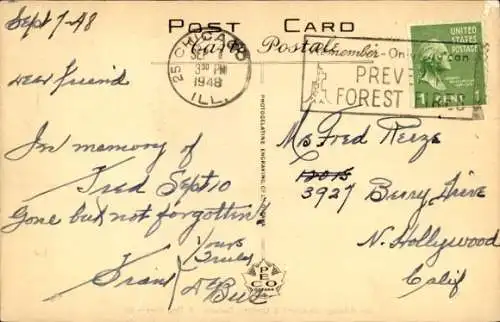 Sept 7-48
POST CARD
Carte Postale
CHICAGO
25
SEP 7
3 30 PM
1948
ILL.
Remember-Only you can
PREVE
FOREST FIRES
UNITED
STATES
POSTAGE
1
Dear Friend
In memory of
Fred Sept 10
Gone but not forgotten
Yours
Truly
&
PHOTOGELATINE ENGRAVING
PECO
Fred
3927 Berry Drive
N. Hollywood
Calif